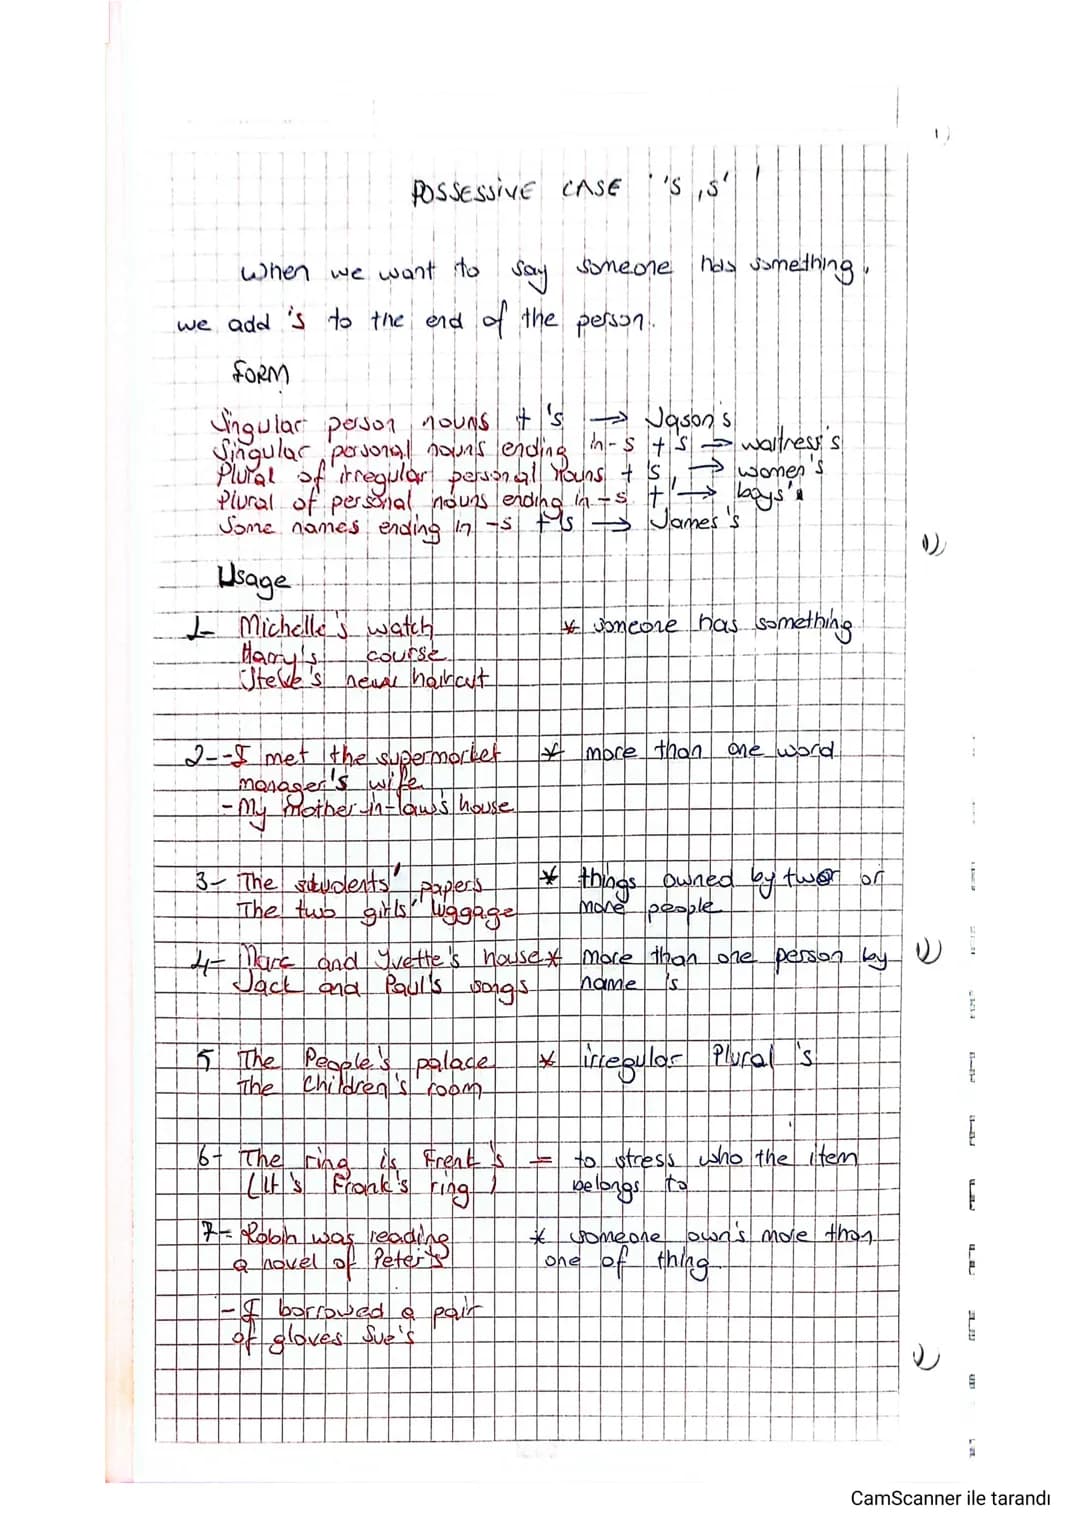 1)
POSSESSIVE CASE 's , s'
when we want to say someone has something,
we add 's to the end of the person.
FORM
Singular person nouns + 's → Jason's
Singular personal nouns ending in -s + 's → waitress's
Plural of irregular personal nouns + 's → women's
Plural of personal nouns ending in -s + ' → boys'
Some names ending in -s + 's → James's
Usage
1- Michelle's watch * someone has something
Harry's course
Steve's new haircut
2- -I met the supermarket * more than one word
manager's wife
-My mother-in-law's house
3- The students' papers * things owned by two or
The two girls' luggage more people
4- Marc and Yvette's house * more than one person by
Jack and Paul's songs name 's
5 The People's palace * irregular Plural 's
The Children's room
6- The ring is Frenk's = to stress who the item
(It's Frank's ring) belongs to
7- Robin was reading * someone own's more than
a novel of Peter's one of thing
-I borrowed a pair
of gloves Sue's
CamScanner ile tarandı